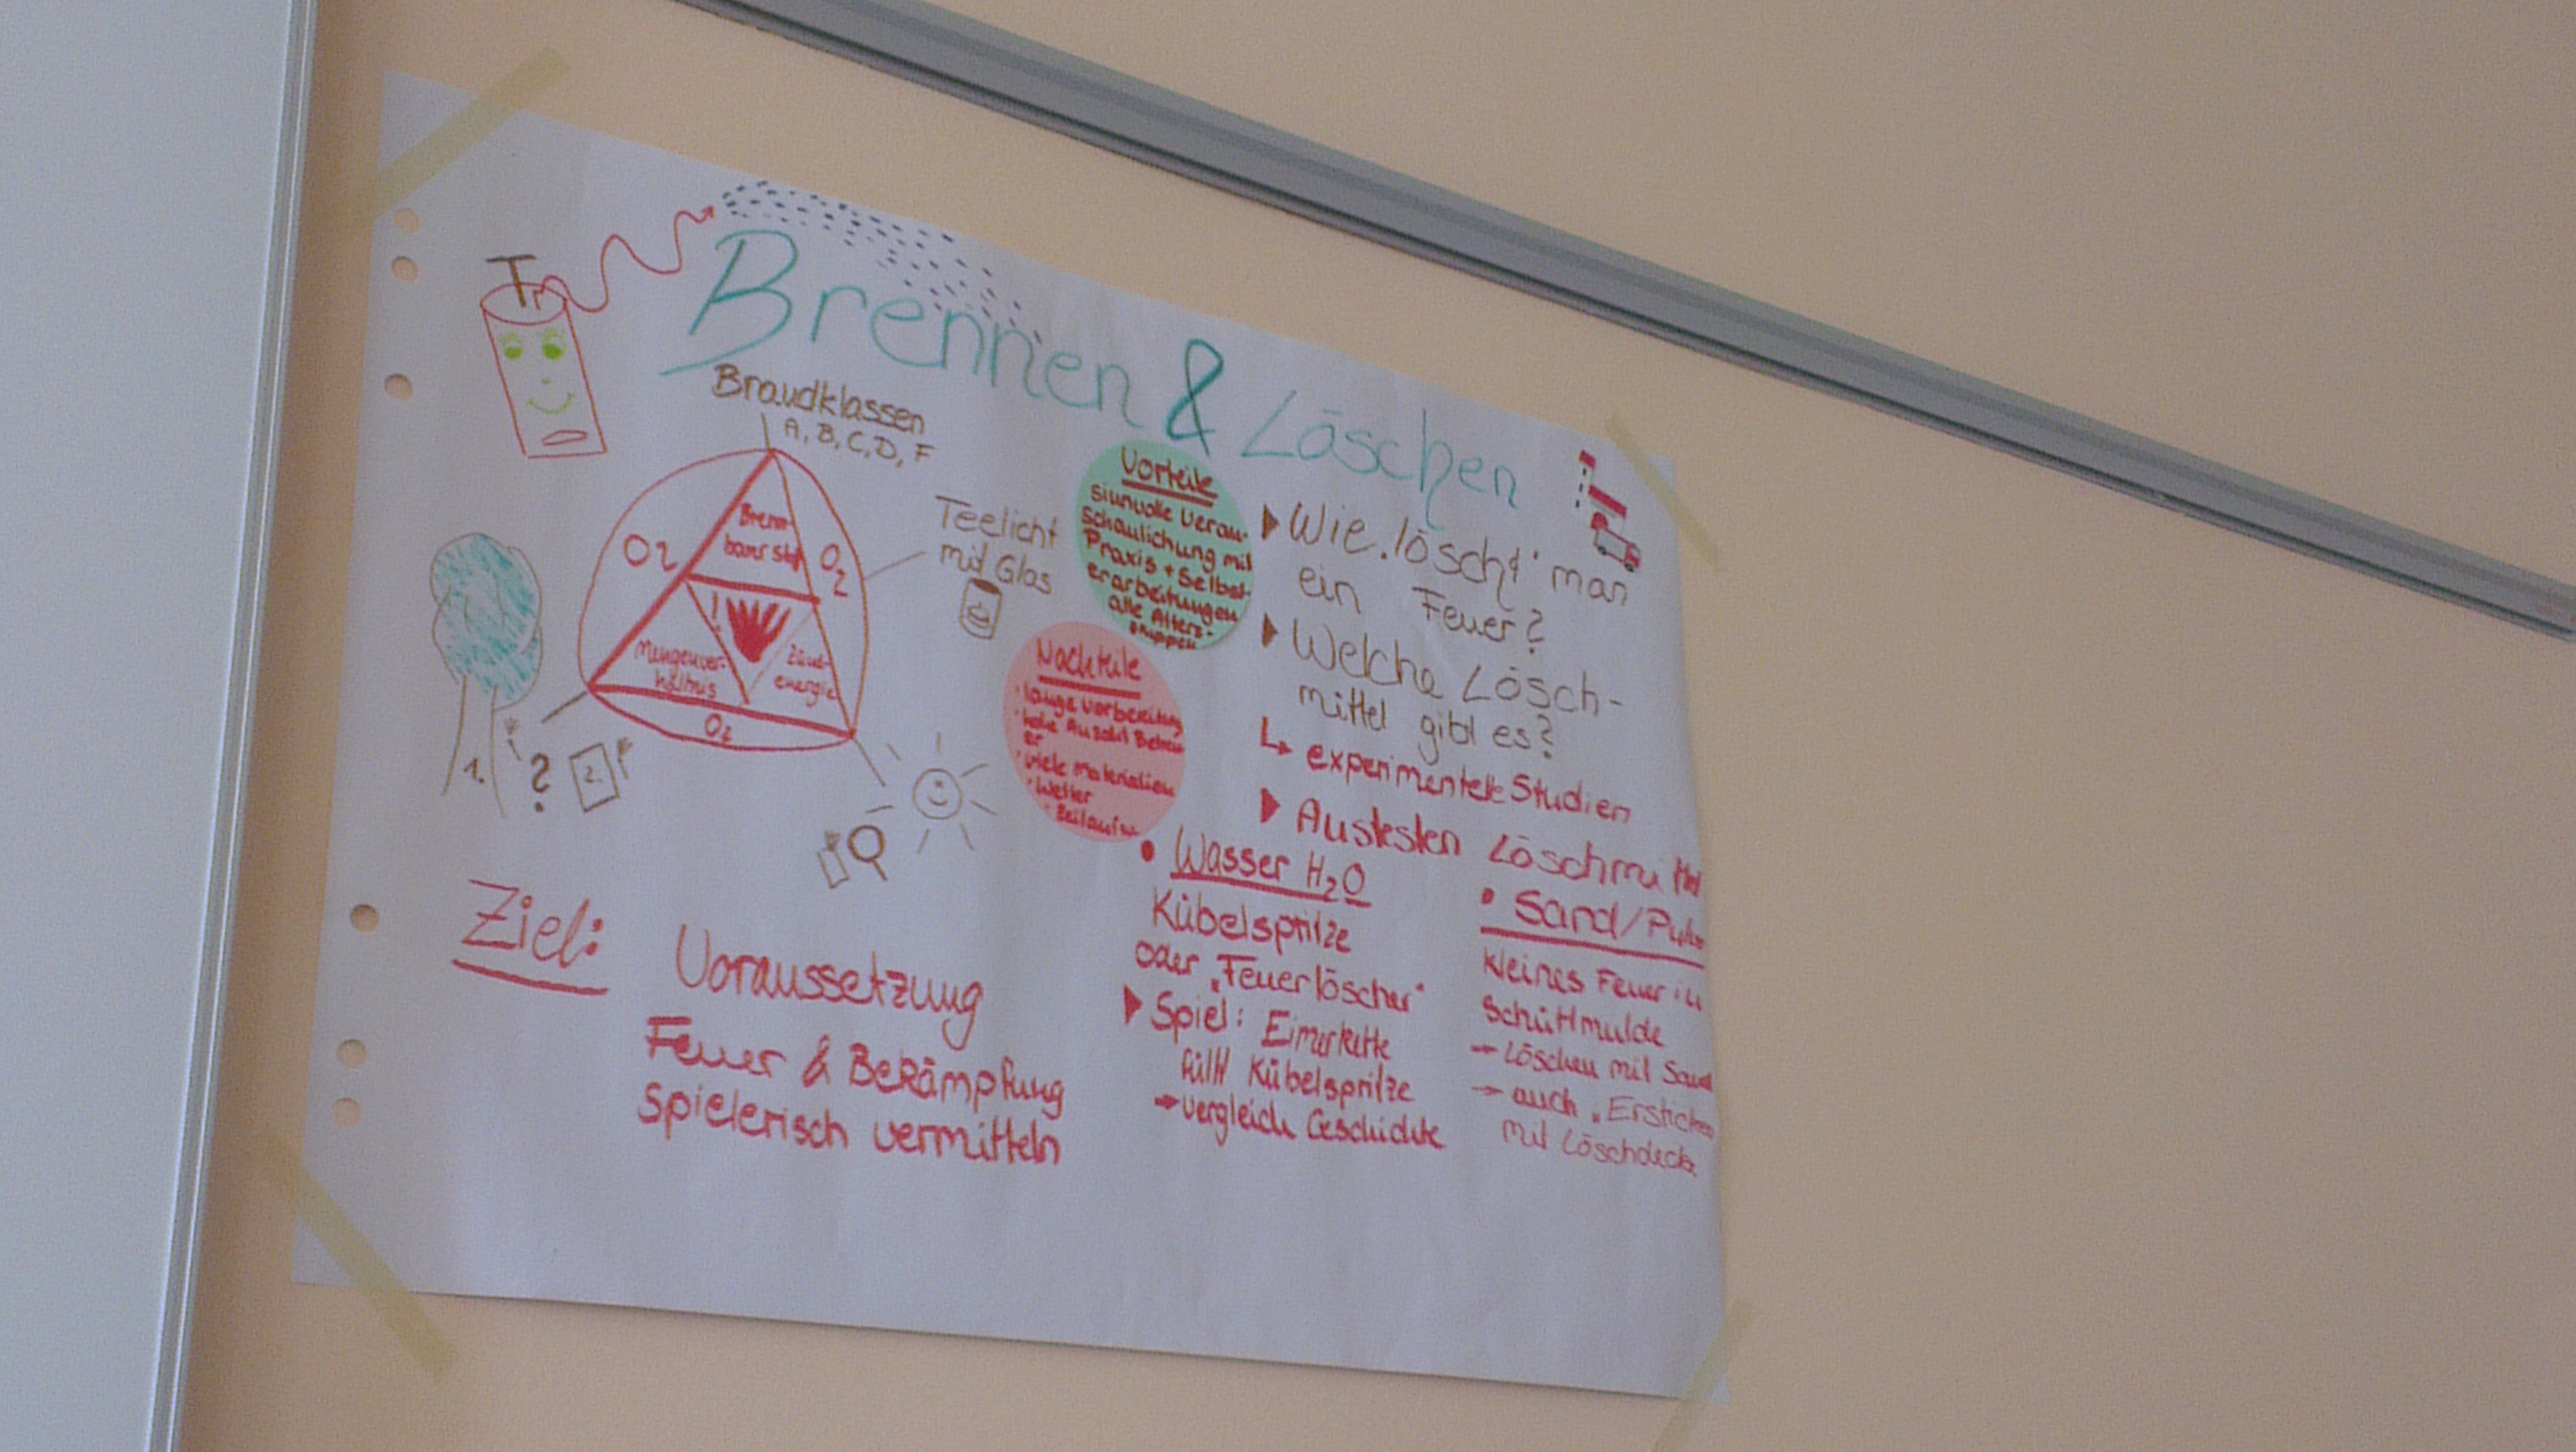 Brennen & Löschen
Brandklassen
A, B, C, D, F
O2
Brenn-
barer
O2
!
Mengenver-
hältnis
Zünd-
energie
O2
Teelicht
mit Glas
1.
?
2.
Vorteile
sinnvolle Veran-
schaulichung mit
Praxis + Selbst-
erarbeitungen
alle Alters-
gruppen
Nachteile
· lange Vorbereitung
· hohe Anzahl Betreu-
er
· viele Materialien
· Wetter
·
▶ Wie "löscht" man
ein Feuer?
▶ Welche Lösch-
mittel gibt es?
↳ experimentelle Studien
▶ Austesten Löschmittel
• Wasser H2O
Kübelspritze
oder "Feuerlöscher"
▶ Spiel: Eimerkette
füllt Kübelspritze
→ Vergleich Geschichte
• Sand/Pulver
kleines Feuer in
Schüttmulde
→ Löschen mit Sand
→ auch "Ersticken
mit Löschdecke
Ziel:
Voraussetzung
Feuer & Bekämpfung
spielerisch vermitteln